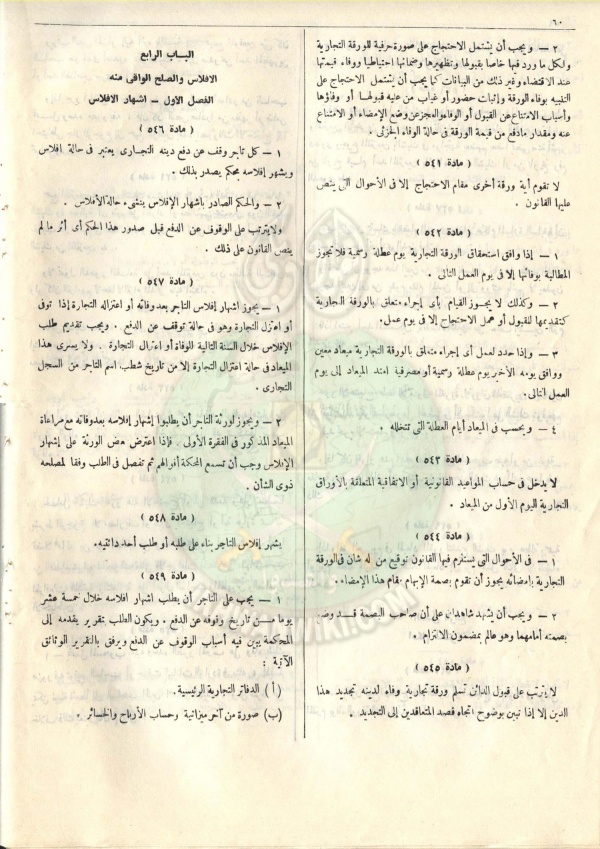 ٦٠
٢ — ويجب أن يشتمل الاحتجاج على صورة حرفية للورقة التجارية
ولكل ما ورد فيها خاصا بقبولها وتظهيرها وضمانها احتياطيا ووفاء قيمتها
عند الاقتضاء وغير ذلك من البيانات كما يجب أن يشتمل الاحتجاج على
التنبيه بوفاء الورقة وإثبات حضور أو غياب من عليه قبولها أو وفاؤها
وأسباب الامتناع عن القبول أو الوفاء والعجز عن وضع الإمضاء أو الامتناع
عنه ومقدار مادفع من قيمة الورقة في حالة الوفاء الجزئى .
( مادة ٥٤١ )
لا تقوم أية ورقة أخرى مقام الاحتجاج إلا فى الأحوال التى ينص
عليها القانون .
( مادة ٥٤٢ )
١ — إذا وافق استحقاق الورقة التجارية يوم عطلة رسمية فلا تجوز
المطالبة بوفائها إلا فى يوم العمل التالى .
٢ — وكذلك لا يجوز القيام بأى إجراء متعلق بالورقة التجارية
كتقديمها للقبول أو عمل الاحتجاج إلا فى يوم عمل.
٣ — وإذا حدد لعمل أى إجراء متعلق بالورقة التجارية ميعاد معين
ووافق يومه الأخير يوم عطلة رسمية أو مصرفية امتد الميعاد إلى يوم
العمل التالى .
٤ — ويحسب فى الميعاد أيام العطلة التى تتخلله .
( مادة ٥٤٣ )
لا يدخل فى حساب المواعيد القانونية أو الاتفاقية المتعلقة بالأوراق
التجارية اليوم الأول من الميعاد .
( مادة ٥٤٤ )
١ — فى الأحوال التى يستلزم فيها القانون توقيع من له شان فى الورقة
التجارية بإمضائه يجوز أن تقوم بصمة الإبهام مقام هذا الإمضاء .
٢ — ويجب أن يشهد شاهدان على أن صاحب البصمة قد وضع
بصمته أمامهما وهو عالم بمضمون الالتزام .
( مادة ٥٤٥ )
لا يترتب على قبول الدائن تسلم ورقة تجارية وفاء لدينه تجديد هذا
الدين إلا إذا تبين بوضوح اتجاه قصد المتعاقدين إلى التجديد .
الباب الرابع
الافلاس والصلح الواقى منه
الفصل الاول — اشهار الافلاس
( مادة ٥٤٦ )
١ — كل تاجر وقف عن دفع دينه التجارى يعتبر فى حالة إفلاس
ويشهر إفلاسه بحكم يصدر بذلك .
٢ — والحكم الصادر باشهار الإفلاس ينشىء حالة الأفلاس .
ولا يترتب على الوقوف عن الدفع قبل صدور هذا الحكم أى أثر ما لم
ينص القانون على ذلك .
( مادة ٥٤٧ )
١ — يجوز اشهار إفلاس التاجر بعد وفاته أو اعتزاله التجارة إذا توفى
أو اعتزل التجارة وهو فى حالة توقف عن الدفع . ويجب تقديم طلب
الإفلاس خلال السنة التالية للوفاة أو اعتزال التجارة . ولا يسرى هذا
الميعاد فى حالة اعتزال التجارة إلا من تاريخ شطب اسم التاجر من السجل
التجارى .
٢ — ويجوز لورثة التاجر أن يطلبوا إشهار إفلاسه بعد وفاته مع مراعاة
الميعاد المذكور فى الفقرة الأولى . فإذا اعترض بعض الورثة على إشهار
الإفلاس وجب أن تسمع المحكمة أقوالهم ثم تفصل فى الطلب وفقا لمصلحة
ذوى الشأن .
( مادة ٥٤٨ )
يشهر إفلاس التاجر بناء على طلبه أو طلب أحد دائنيه .
( مادة ٥٤٩ )
١ — يجب على التاجر أن يطلب اشهار افلاسه خلال خمسة عشر
يوما من تاريخ وقوفه عن الدفع . ويكون الطلب بتقرير يقدمه إلى
المحكمة يبين فيه أسباب الوقوف عن الدفع ويرفق بالتقرير الوثائق
الآتية :
( أ ) الدفاتر التجارية الرئيسية .
(ب) صورة من آخر ميزانية وحساب الأرباح والخسائر .